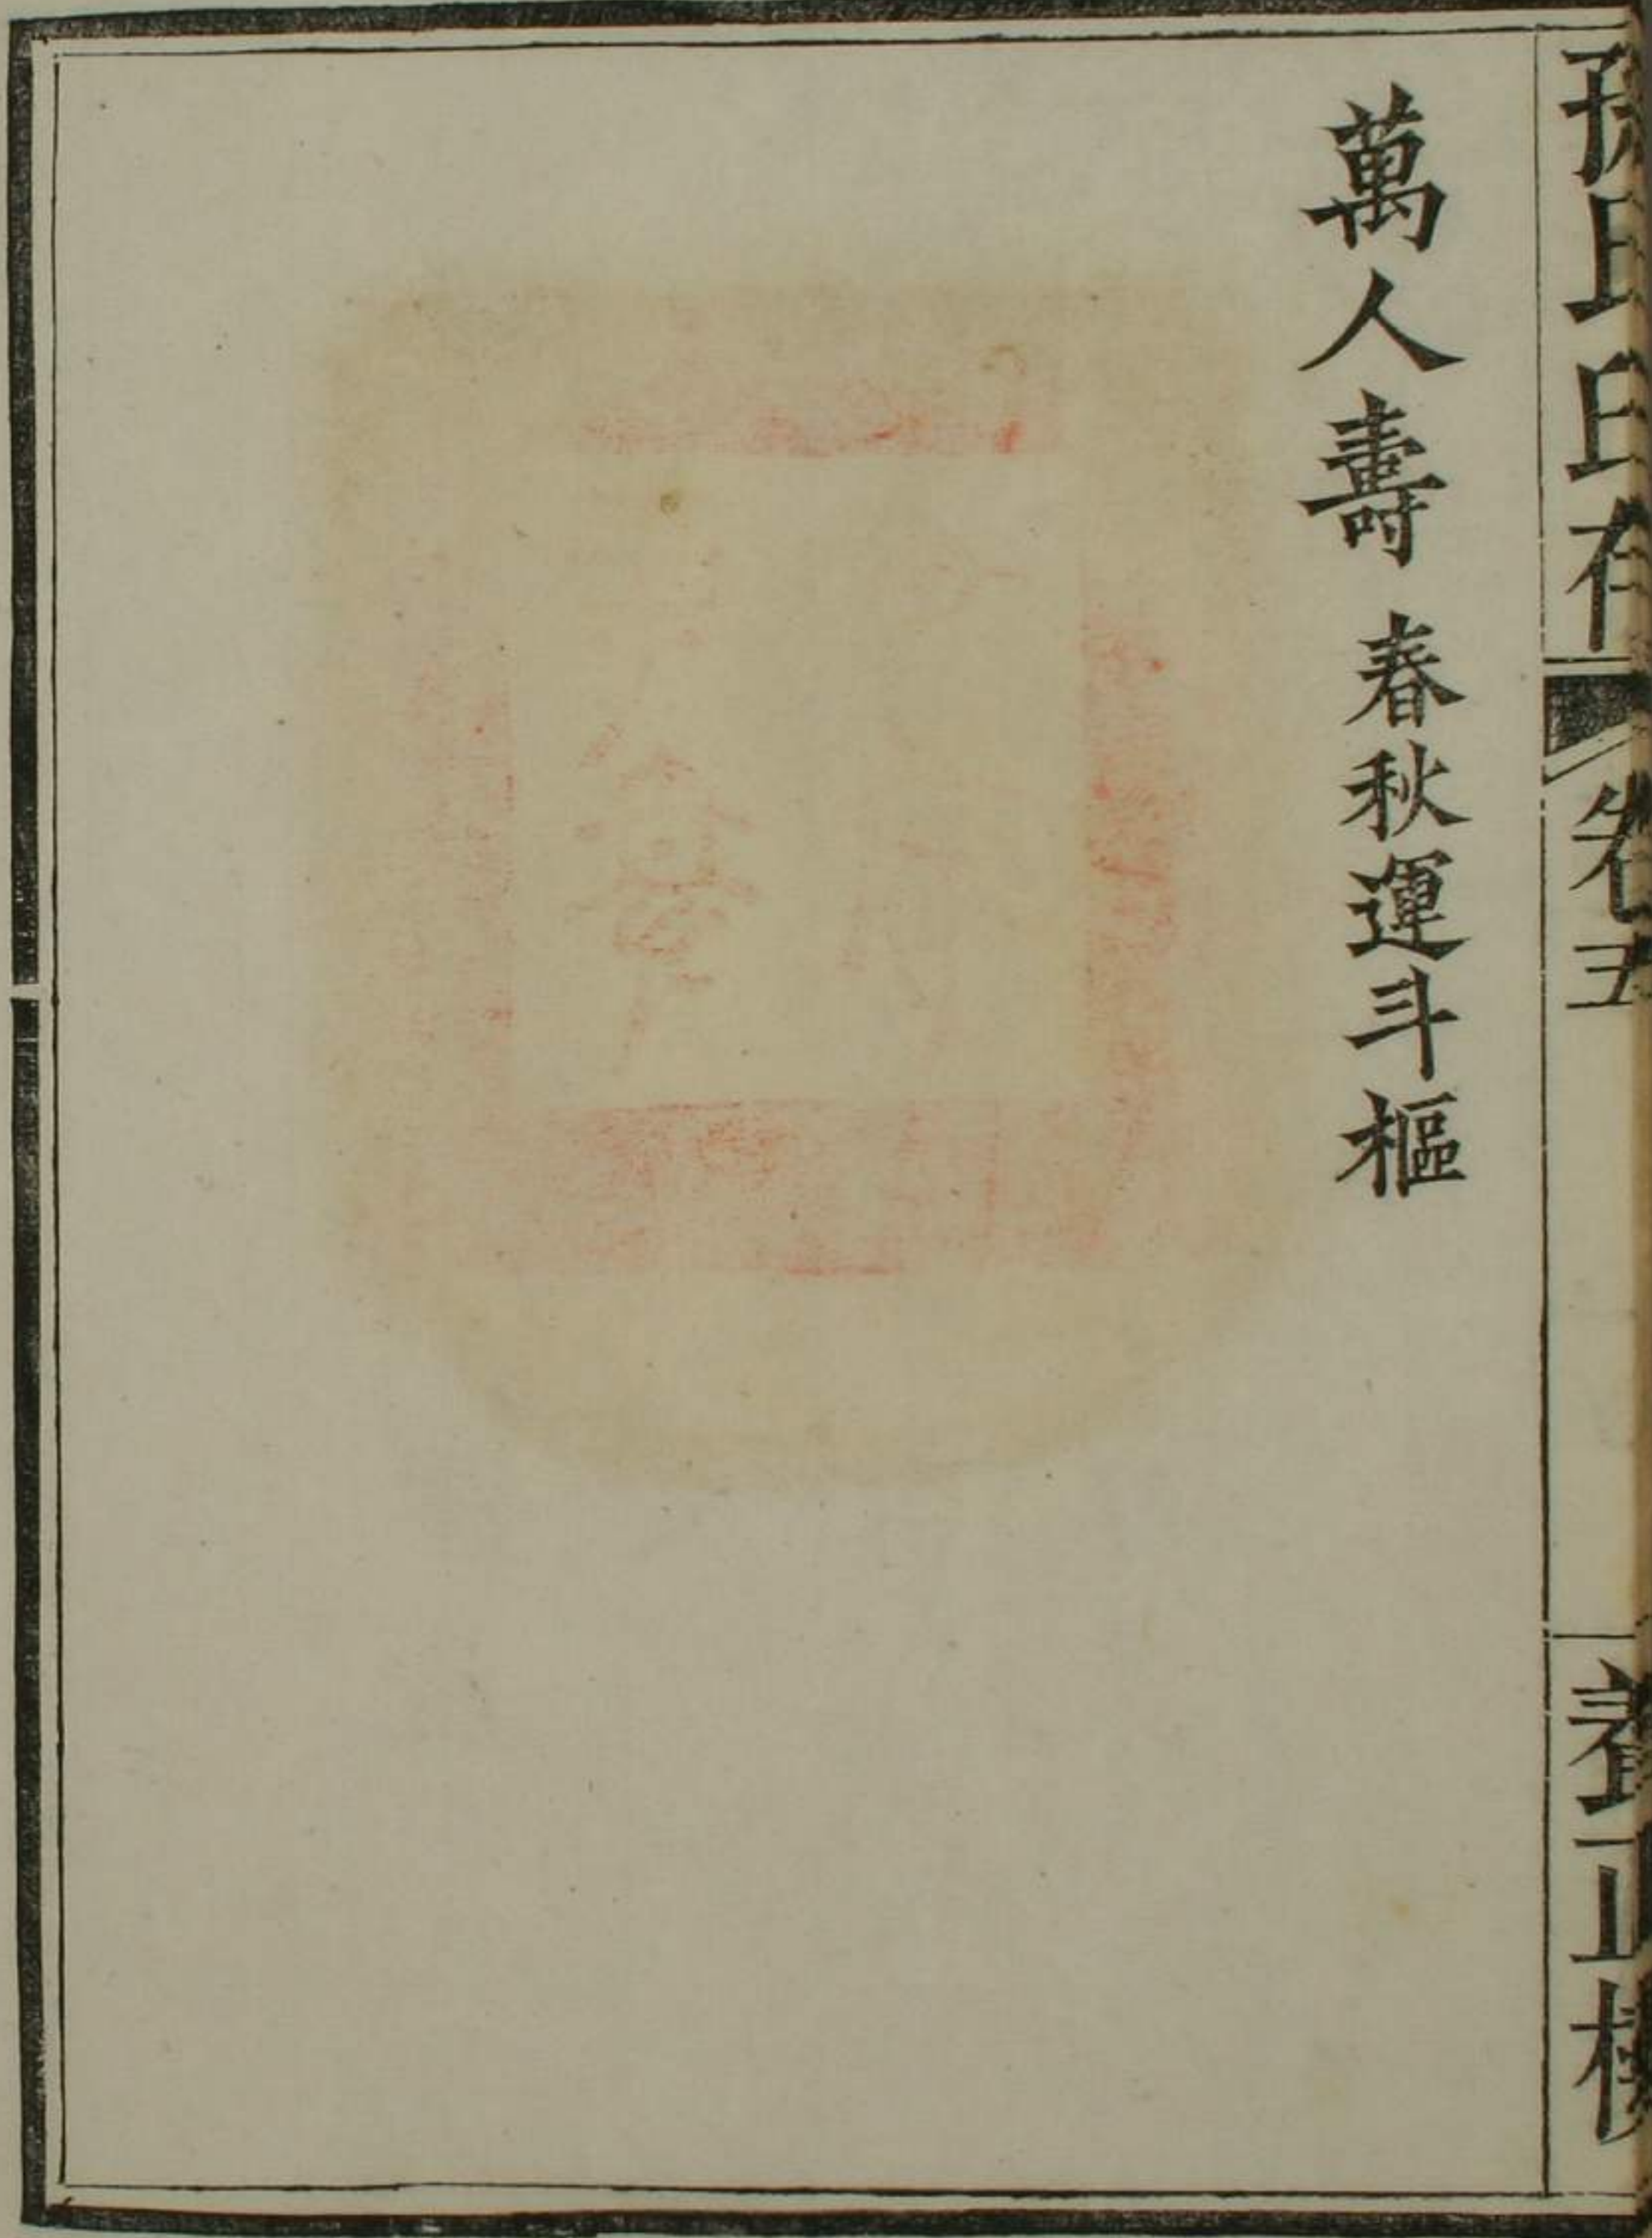 孫氏印存
卷五
養正樓
萬人壽 春秋運斗樞